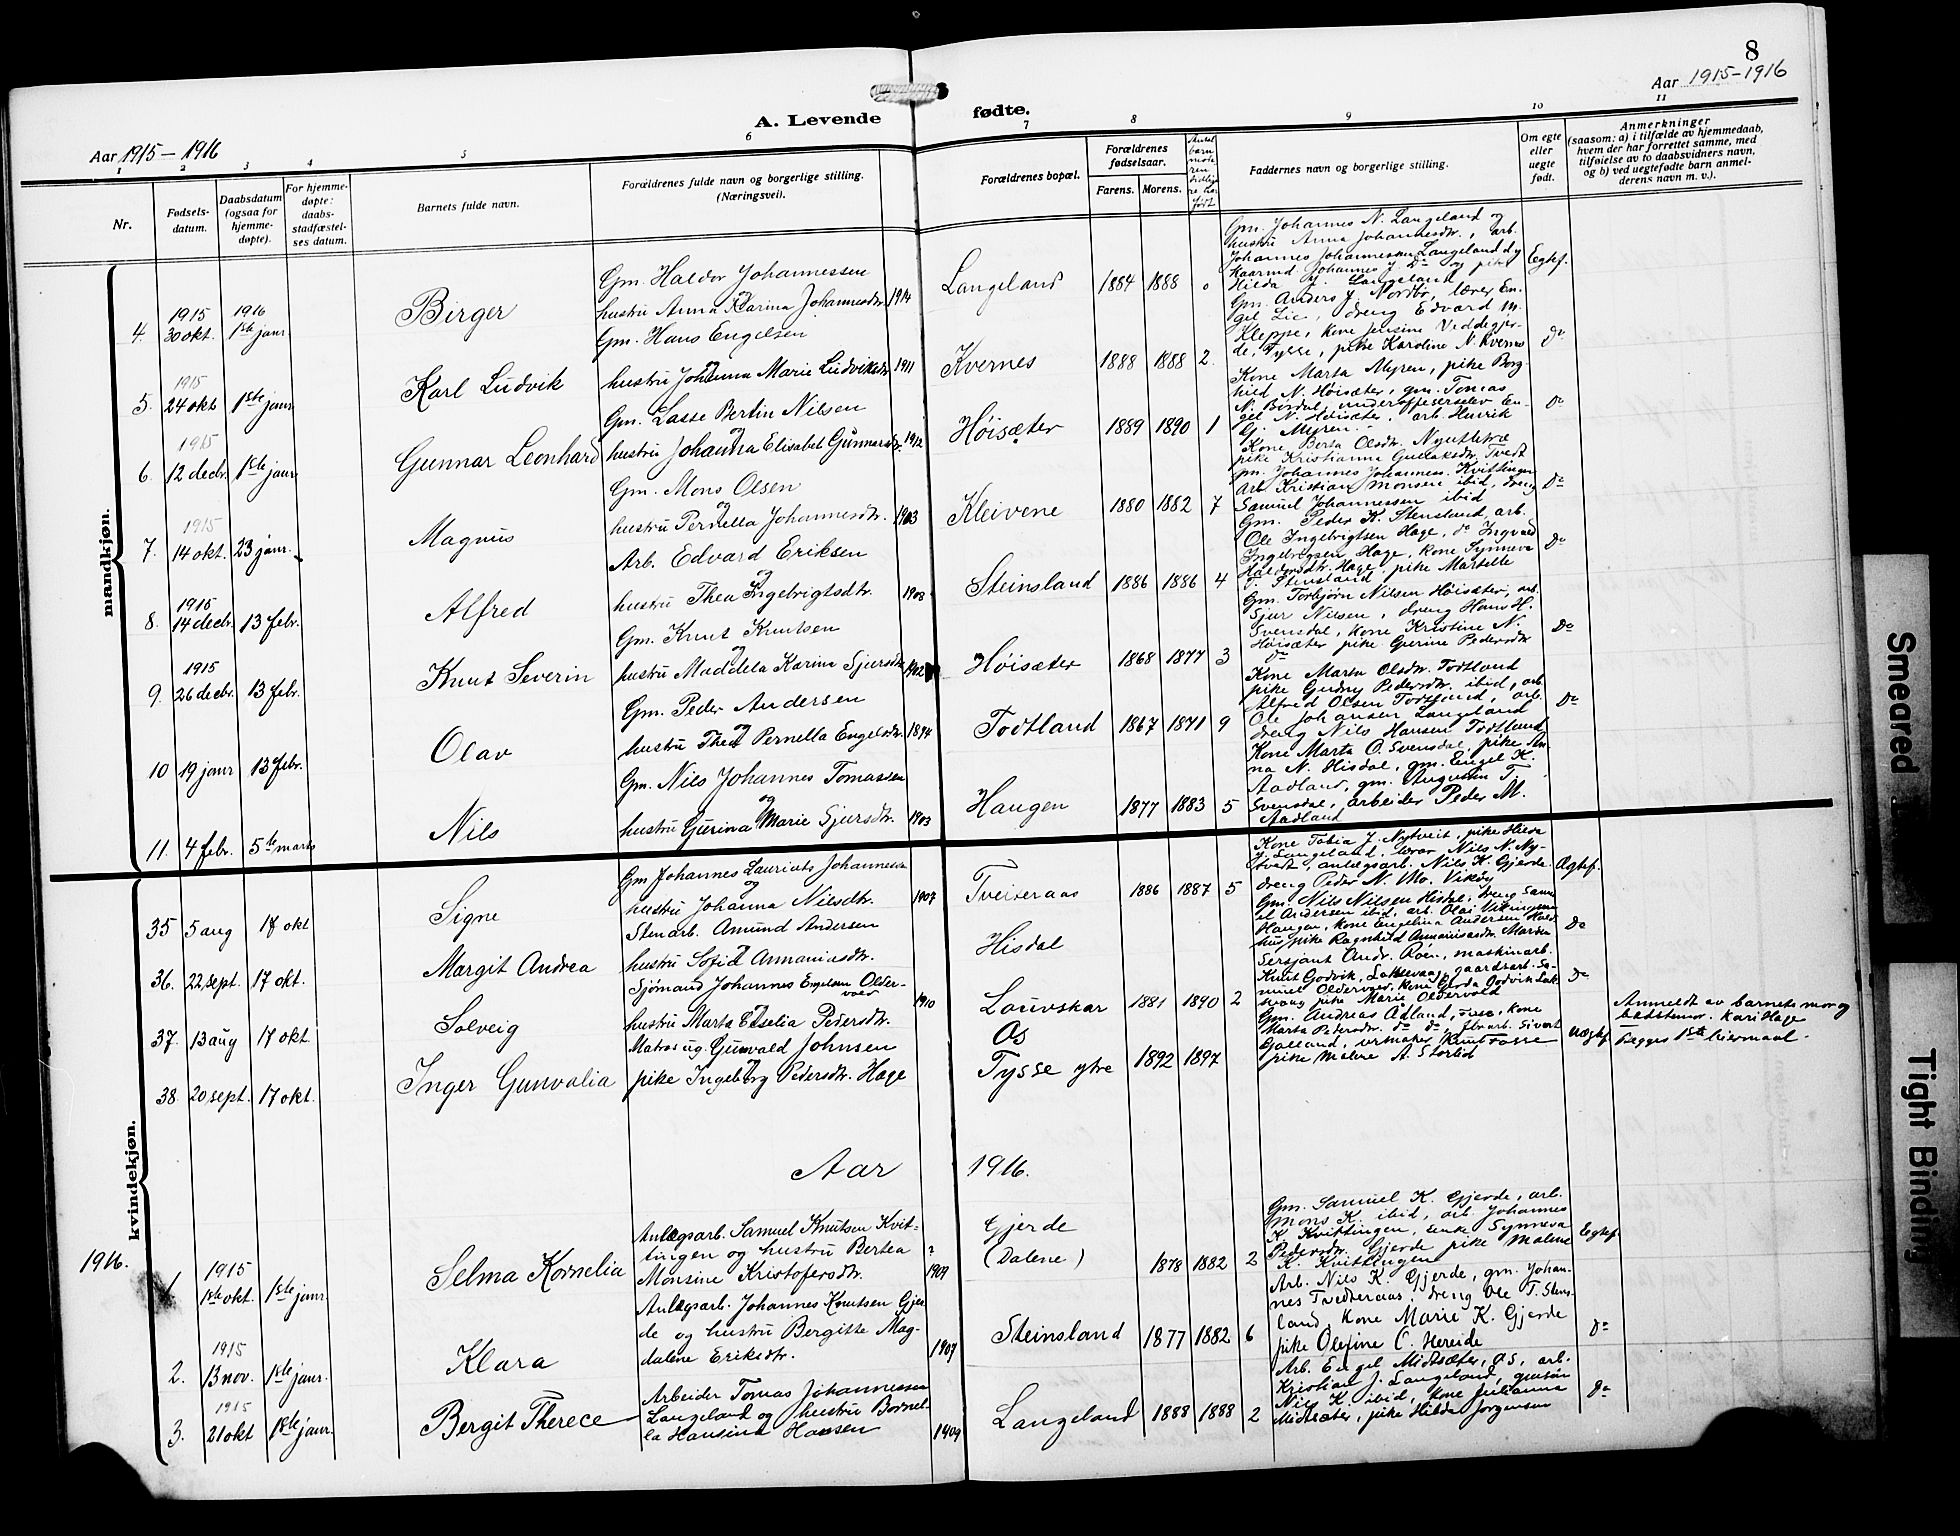 8
Aar 1915-1916
A. Levende fødte.
Aar 1915 - 1916
1 2 3 4 5 6 7 8 9 10 11
Nr.
Fødsels-
datum.
Daabsdatum
(ogsaa for
hjemme-
døpte).
For hjemme-
døpte:
daabs-
stadfæstel-
ses datum.
Barnets fulde navn.
Forældrenes fulde navn og borgerlige stilling.
(Næringsvei).
Forældrenes bopæl.
Forældrenes
fødselsaar.
Farens. Morens.
Faddernes navn og borgerlige stilling.
Om egte
eller
uegte
født.
Anmerkninger
(saasom: a) i tilfælde av hjemmedaab,
hvem der har forrettet samme, med
tilføielse av to daabsvidners navn,
og b) ved uegtefødte barn anmel-
derens navn m. v.).
mandkjøn.
4. 1915 30 okt. 1916 1ste janr Birger
Gm. Haldor Johannessen
og
hustru Anna Karina Johannesdtr. 1914
Langeland 1884 1888 0
Gm. Johannes N. Langeland og
hustru Anna Johannesdtr., arb.
Johannes Johannessen Langeland dy
kaarmd. Johannes J. Do og pike
Hilda J. Langeland
Egtef.
5. 1915 24 okt 1ste janr Karl Ludvik
Gm. Hans Engelsen
og
hustru Johanna Marie Ludviksdtr 1911
Kvernes 1888 1888 2
Gm. Anders J. Nordbø, lærer En-
gel Lie, dreng Edvard M.
Kleppe, kone Jensine Viddegjer-
de, Tysse, pike Karoline N. Kvernes
Do
6. 1915 12 decbr. 1ste janr Gunnar Leonhard
Gm. Lasse Bertin Nilsen
og
hustru Johanna Elisabet Gunnarsdtr. 1912
Høisæter 1889 1890 1
Kone Marta Myren, pike Borg-
hild N. Høisæter, gm. Tomas
N. Børdal, underofficerselev En-
gel N. Høisæter, arb. Henrik
G. Myren.
Do
7. 1915 14 okt. 23 janr. Magnus
Gm. Mons Olsen
og
hustru Pernella Johannesdtr. 1903
Kleivene 1880 1882 7
Kone Berta Olsdtr. Nyuttetræ
pike Kristianna Gullaksdtr. Tvedt
gm. Johannes Johanness. Kvittingen
Arb. Kristian Monsen ibid, dreng
Samuel Johannessen ibid
Do
8. 1915 14 decbr. 13 febr. Alfred
Arb. Edvard Eriksen
og
hustru Thea Ingebrigtsdtr. 1908
Steinsland 1886 1886 4
Gm. Peder K. Stensland, arb.
Ole Ingebrigtsen Hage, do Ingvald
Ingebrigtsen Hage, kone Synneva
Haldorsdtr. Hage, pike Martelle
T. Stensland
Do
9. 1915 26 decbr. 13 febr. Knut Severin
Gm. Knut Knutsen
og
hustru Maddela Karina Sjursdtr 1902
Høisæter 1868 1877 3
Gm. Torbjørn Nilsen Høisæter, arb.
Sjur Nilsen, dreng Hans H.
Svensdal, kone Kristine N.
Høisæter pike Gurine Pedersdtr
do
Do
10 19 janr 13 febr. Olav
Gm. Peder Andersen
og
hustru Thea Pernella Engelsdtr. 1894
Todtland 1867 1871 9
Kone Marta Olsdtr. Todtland
pike Gudny Pedersdtr. ibid, arb.
Alfred Olsen Todtland, arb.
Ole Johansen Langeland
dreng Nils Hansen Todtland
Do
11. 4 febr. 5te marts Nils
Gm. Nils Johannes Tomassen
og
hustru Gurina Marie Sjursdtr. 1903
Haugen 1877 1883 5
Kone Marta O. Svensdal, pike An-
na N. Hisdal, gm. Engel K.
Aadland, gm. Augustin T.
Svensdal, arbeider Peder M.
Aadland
kvindekjøn.
35 5 aug 18 okt Signe
Gm Johannes Laurients Johannessen
og
hustru Johanna Nilsdtr. 1907
Tveiteraas 1886 1887 5
Kone Tobia J. Nytveit, pike Hilda
J. Langeland, lærer Nils N. Ny-
tvet, anlægsarb. Nils K. Gjerde
dreng Peder N. Mo, Vikøy
Ægtef.
36. 22 sept. 17 okt. Margit Andrea
Stenarb. Amund Andersen
hustru Sofie Annaniasdtr.
Hisdal
Gm. Nils Nilsen Hisdal, dreng Samu-
el Andersen ibid, arb. Olai Vikingsen
Haugen, kone Engelina Andersen Hald
hus, pike Ragnhild Annaniasdtr.
Do
37. 13 aug 17 okt. Solveig
Sjømand Johannes Engelsen Older-
vold
hustru Marta Eliselia Pedersdtr. 1910
Lauvskar
Os
1881 1890 2
Sersjant Andr. Roen, maskinarb.
Knut Godvik, Laksevaag, gaardsarb. Sa-
muel Oldervold, kone Gerda Godvik Lak-
sevaag pike Marie Oldervold
Do
38. 20 sept. 17 okt. Inger Gunvalia
Matros ug. Gunvald Johnsen
pike Ingeborg Pedersdtr. Hage
Tysse ytre 1892 1897
Gm. Andreas Ådland, Tysse, kone
Marta Pedersdtr. do do, fbr.arb. Sivert
Gaasand, urmaker Knut Tosse
pike Malene A. Storlid
Uægtef.
Anmeldt av barnets mor og
bedstemor. Kari Hage
Begges 1ste leiermaal.
Aar 1916.
1916.
1 1915 1ste okt. 1ste janr. Selma Kornelia
Anlægsarb. Samuel Knutsen Kvit-
tingen og hustru Bertea
Monsine Kristofersdtr. ? 1909
Gjerde
(Dalene) 1878 1882 2
Gm. Samuel K. Gjerde, arb.
Mons K. ibid, arb. Johannes
K Kvittingen, enke Synneva
Pedersdtr. Gjerde pike Malene
K. Kvittingen
Egtef.
2. 1915 13 nov. 1ste janr. Klara
Anlægsarb. Johannes Knutsen Gjer
de og hustru Bergitte Mag-
dalene Eriksdtr. 1907
Steinsland 1877 1882 6
Arb. Nils K. Gjerde, gm. Johan-
nes Tvedteraas, dreng Ole T. Stens-
land, kone Marie K. Gjerde
pike Olefine C. Hereide
Do
3. 1915 21 okt 1ste janr. Bergit Therece
Arbeider Tomas Johannessen
Langeland og hustru Bornel-
la Hansina Hansen 1909
Langeland 1888 1888 2
Arb. Engel Midtsæter, Os, arb.
Kristian J. Langeland,
Nils K. ibid, kone Julianna
Midtsæter, pike Hilda Jørgensen
Do
Smeared
Tight Binding